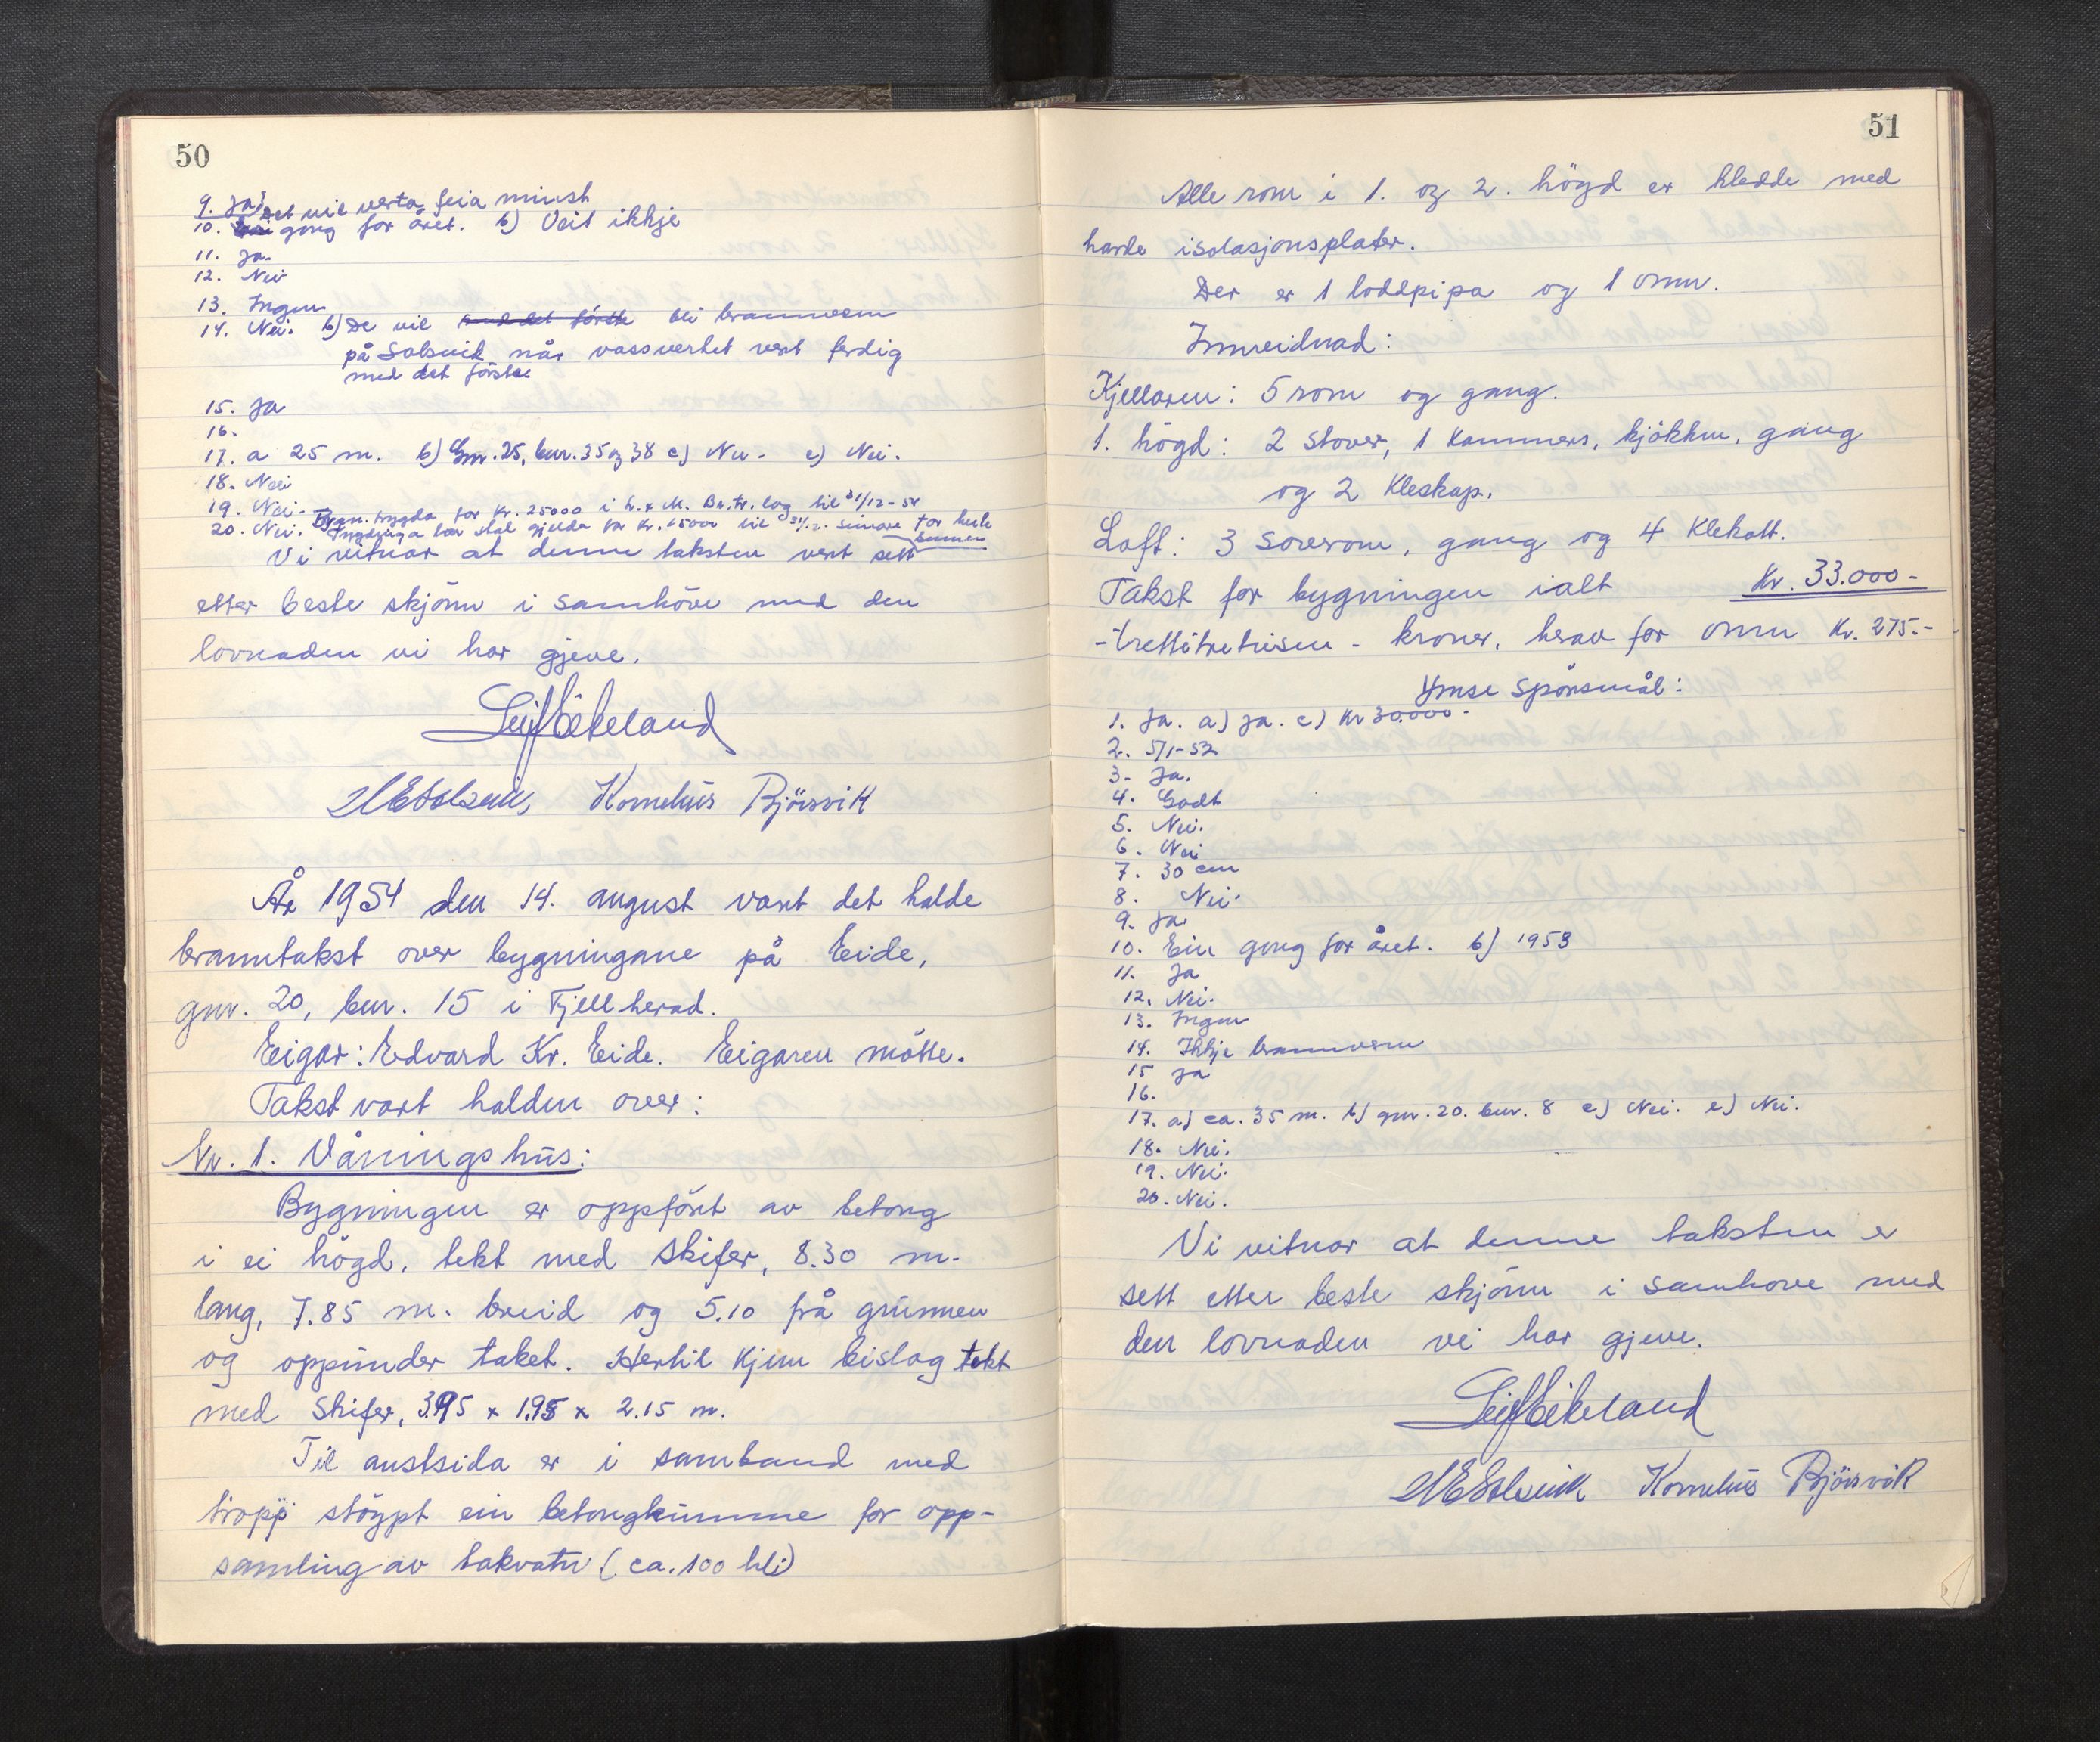 50
9. Ja
10. Det vil verta feia minst
gong for året. b) Veit ikkje
11. Ja.
12. Nei
13. Ingen
14. Nei. b) De vil bli brannvern
på Solsvik når vassverket vert ferdig
med det første
15. Ja
16.
17. a 25 m. b) Gnr. 25, bnr. 35 og 38 c) Nei. e) Nei.
18. Nei
19. Nei.
20. Nei. Bygn. trygda for Kr. 25000 i L. & M. Br.tr.lag til 31/12-54
Trygdinga skal gjelda for Kr. 15000 til 31/12. seinare for heile
summen
Vi vitnar at denne taksten vert sett
etter beste skjönn i samhöve med den
lovnaden vi har gjeve.
Leif Eikeland
M E Solsvik, Kornelius Björsvik
År 1954 den 14. august vart det halde
branntakst over bygningane på Eide,
gnr. 20, bnr. 15 i Fjell herad.
Eigar: Edvard Kr. Eide. Eigaren mötte.
Takst vart halden over:
Nr. 1. Våningshus:
Bygningen er oppfört av betong
i ei högd, tekt med skifer, 8.30 m.
lang, 7.85 m. breid og 5.10 frå grunnen
og oppunder taket. Hertil kjem bislag tekt
med skifer, 3.95 x 1.95 x 2.15 m.
Til austsida er i samband med
tropp stöypt ein betongkumme for opp-
samling av takvatn (ca. 100 hl.)
51
Alle rom i 1. og 2. högd er kledde med
harde isolasjonsplater.
Der er 1 loddpipa og 1 omn.
Innreidnad:
Kjellaren: 5 rom og gang.
1. högd: 2 stover, 1 kammers, kjökken, gang
og 2 kleskap.
Loft: 3 soverom, gang og 4 klekott.
Takst for bygningen ialt Kr. 33.000-
-trettitretusen- kroner, herav for omn Kr. 275.-
Ymse spörsmål:
1. Ja. a) Ja. c) Kr 30.000-
2. 5/1-52
3. Ja.
4. Godt
5. Nei.
6. Nei
7. 30 cm
8. Nei.
9. Ja.
10. Ein gong for året. b) 1953
11. Ja
12. Nei.
13. Ingen
14. Ikkje brannvern
15 Ja
16.
17. a) ca. 35 m. b) gnr. 20. bnr. 8 c) Nei. e) Nei.
18. Nei.
19. Nei.
20. Nei.
Vi vitnar at denne taksten er
sett etter beste skjönn i samhove med
den lovnaden vi har gjeve.
Leif Eikeland
M E Solsvik Kornelius Björsvik